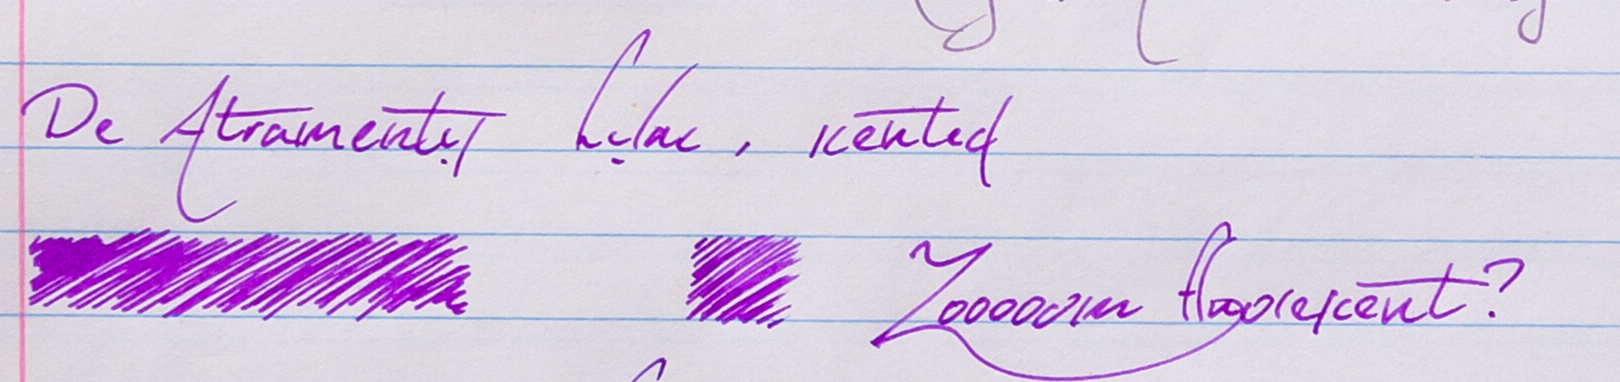 De Atramentis Lilac, scented
Zooooom fluorescent?